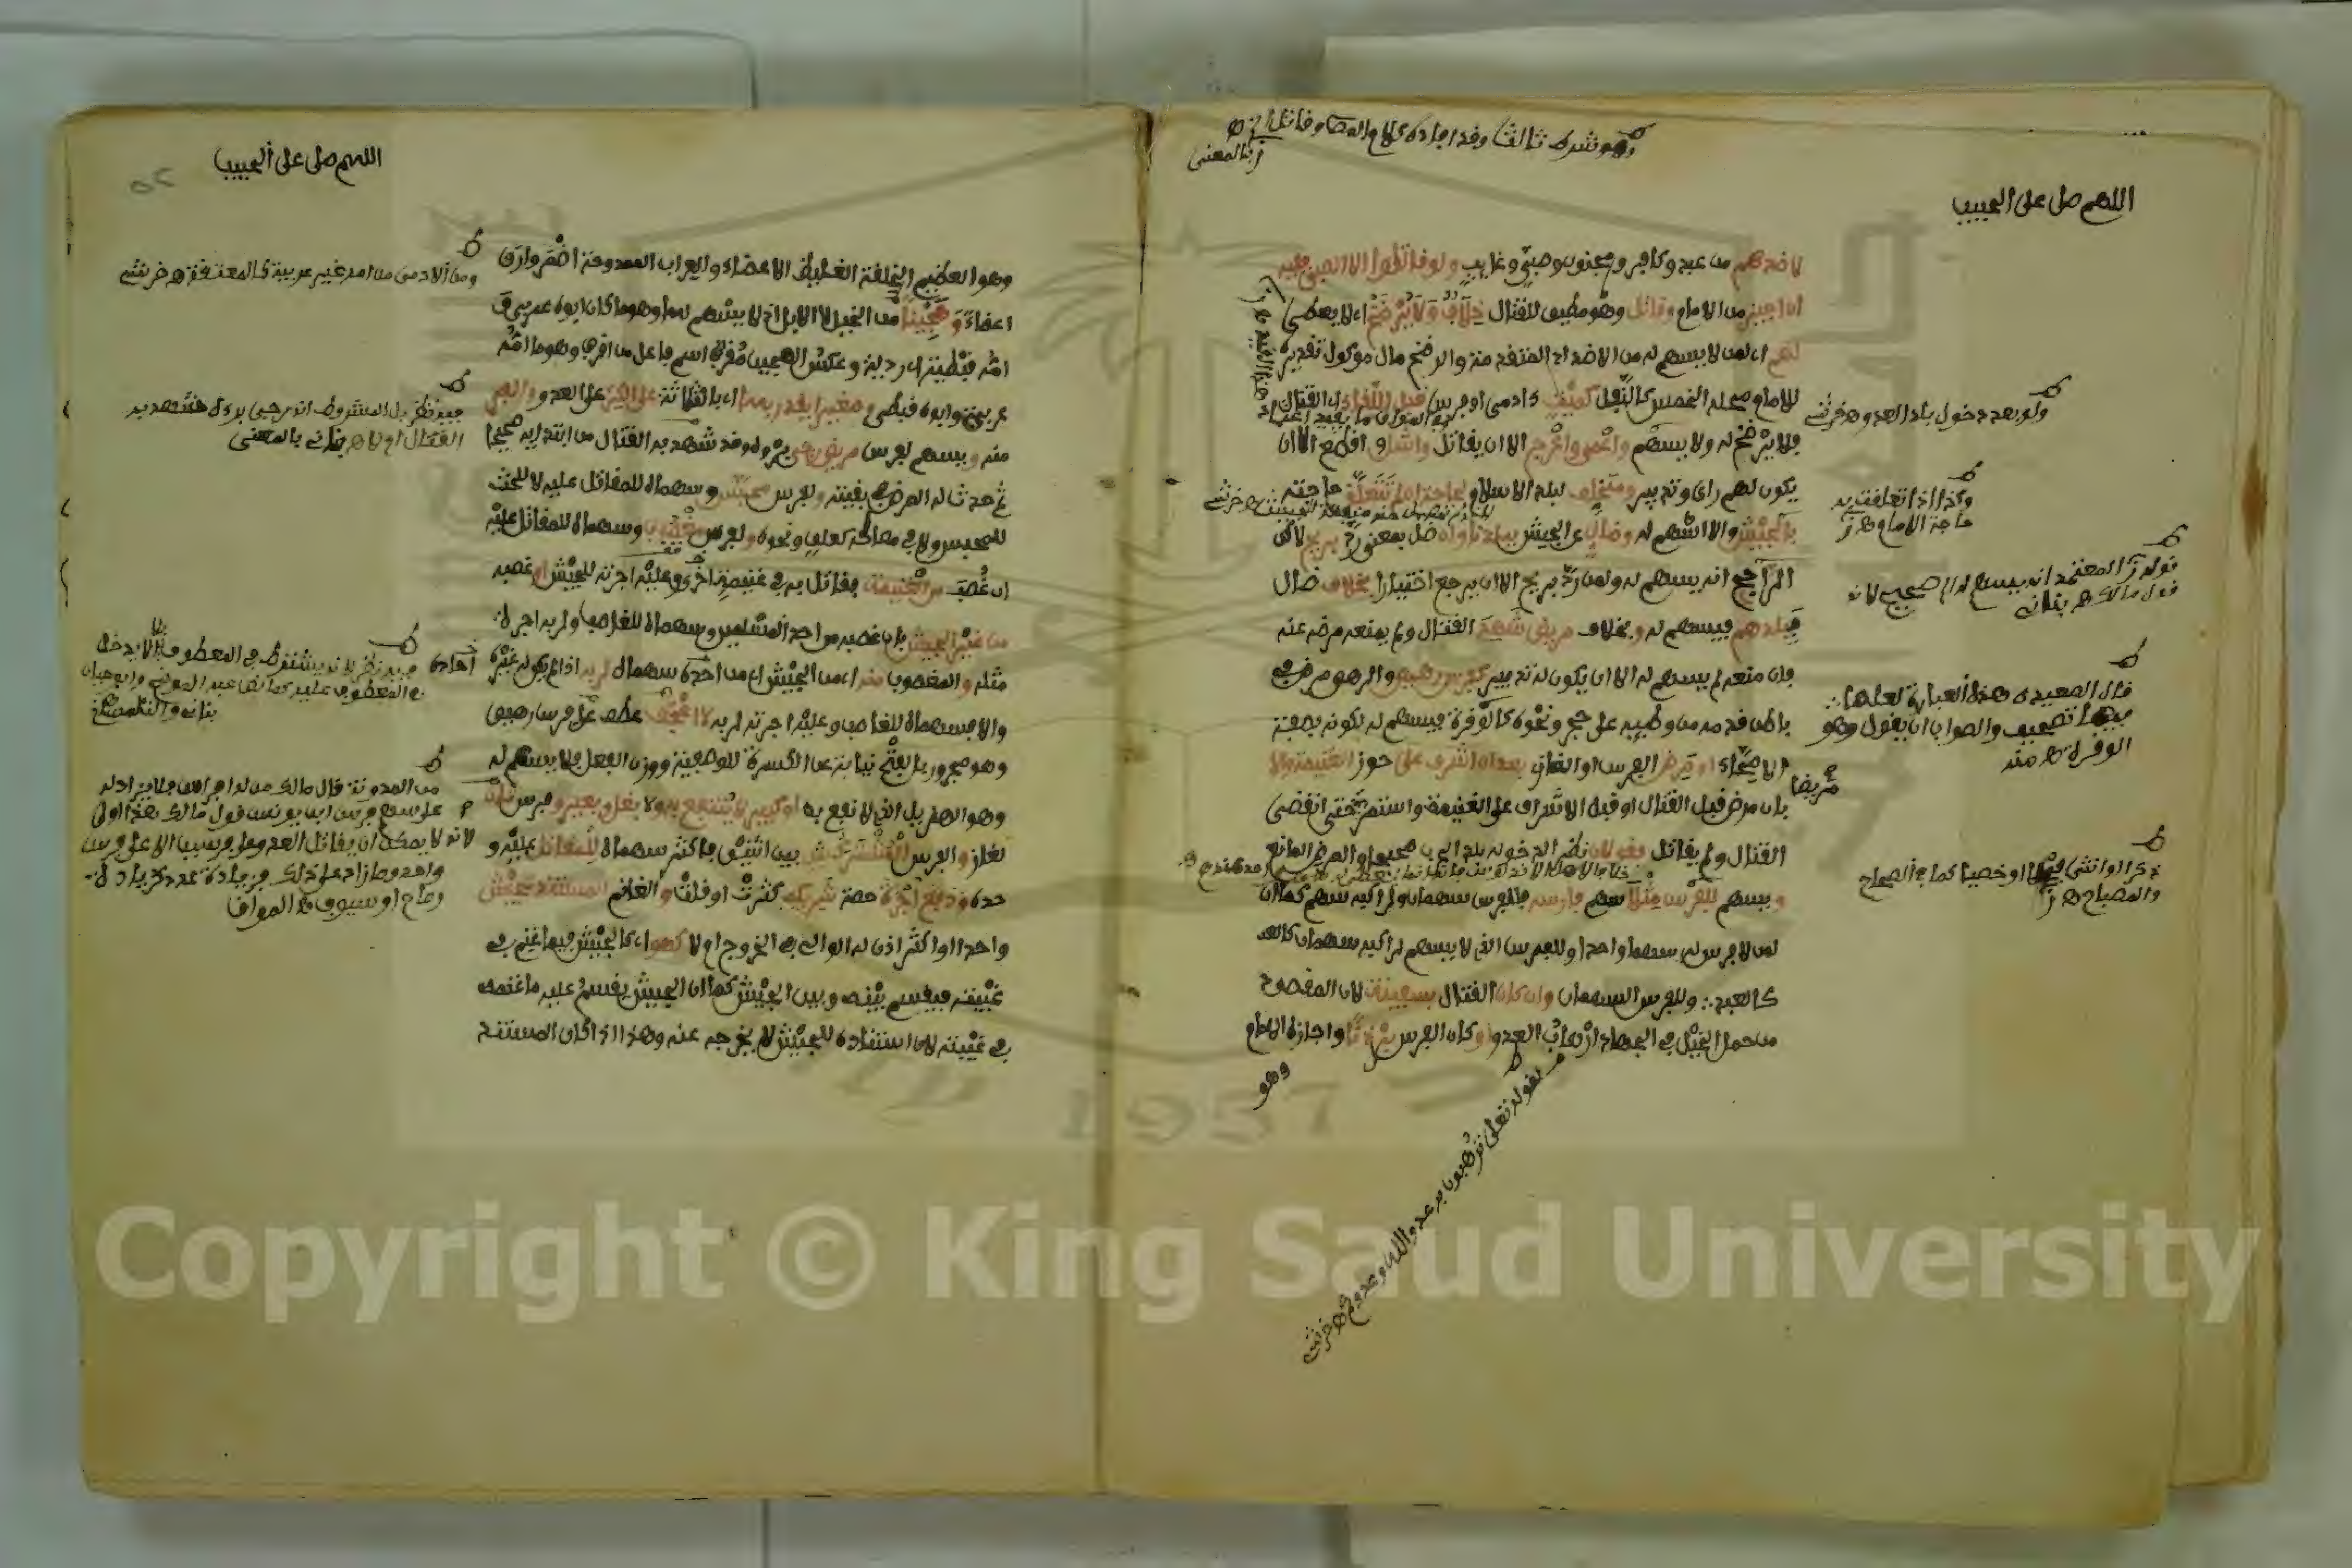 وهو شرط ثالث وقد اجاده كلام المص وقاتل الخ ه
ز بالمعنى
اللهم صل على الحبيب
لا ضدهم من عبد وكافر ومجنون وصبي وغايب ولو قاتلوا الا الصبي ففيه
ان اجيز من الامام وقاتل وهو مطيق للقتال خلاف ولا يرضخ اي لا يعطى
لهم اي لمن لا يسهم له من الاضداد المتقدمة والرضخ مال موكول تقديره
للامام محله الخمس كالنفل كميت كادمي او فرس قبل اللقاء اي القتال
فلا يرضخ له ولا يسهم واعمى واعرج الا ان يقاتل واشل واقطع الا ان
يكون لهم راي وتدبير ومتخلف ببلد الاسلام لحاجة ان لم تتعلق حاجته
بالجيش والا اسهم له وضال عن الجيش ببلدنا وان ضل بمعنى رد بريح لاكن
الراجح انه يسهم له ولمن رد بريح الا ان يرجع اختيارا بخلاف ضال
ببلدهم فيسهم له وبخلاف مريض شهد القتال ولم يمنعه مرضه عنه
فان منعه لم يسهم له الا ان يكون له تدبير كفرس رهيص والرهص مرض في
باطن قدمه من وطييه على حجر ونحوه كالوقرة فيسهم له لكونه بصفة
الاصحاء او مرض الفرس او الغازي بعد ان اشرف على حوز الغنيمة والا
بان مرض قبل القتال او قبل الاشراف على الغنيمة واستمر حتى انقضى
القتال ولم يقاتل فقولان نظر الدخوله بلد الحرب صحيحا والمرض المانع
ويسهم للفرس مثلا سهم فارسه فللفرس سهمان ولراكبه سهم كما ان
لمن لا فرس له سهما واحدا وللفرس الذي لا يسهم لراكبه سهمان كالعد
كالعبد وللفرس السهمان وان كان القتال بسفينة لان المقصود
من حمل الخيل في الجهاد ارهاب العدو او كان الفرس برذونا واجازه الامام
وهو
لقوله تعلى ترهبون به عدو الله وعدوكم ه خرشي
ولو بعد دخول بلد العدو ه خرشي
وكذا اذا تعلقت به
حاجة الامام ه ز
قوله ز المعتمد انه يسهم له الصحيح لانه
قول مالك ه بناني
قال الصعيدي هذه العبارة لعلها
فيها تصحيف والصواب ان يقول وهو
الوقرة ه منه
مريضا
ذكرا او انثى او خصيا كما في الصحاح
والمصباح ه ز
اللهم صل على الحبيب
وهو العظيم الخلقة الغليظ الاعضاء والعراب الممدوحة اضمر وارق
اعضاء وهجينا من الخيل لا الابل اذ لا يسهم لها وهو ما كان ابوه عربي و
امه قبطية اي ردية وعكس الهجين مقرف اسم فاعل من اقرف وهو ما امه
عربية وابوه قبطي وصغيرا يقدر بها اي بالثلاثة على الكر على العدو والفر
منه ويسهم لفرس مريض رجي برؤه وقد شهد به القتال من ابتدايه صحيحا
ثم حدث له المرض في بقيته ولفرس محبس وسهماه للمقاتل عليه لا للمحبس
للمحبس ولا في مصالحه كعلف ونحوه ولفرس مغصوب وسهماه للمقاتل عليه
ان غصب من الغنيمة فقاتل به في غنيمة اخرى وعليه اجرته للجيش او غصبه
من غير الجيش بان غصبه من احد المسلمين وسهماه للغاصب ولربه اجرة
مثله والمغصوب منه اي من الجيش اي من احده سهماه لربه اذا لم يكن له غيره
والا فسهماه للغاصب وعليه اجرته لربه لا اعجف عطف على فرس رهيص
وهو مجرور بالفتح نيابة عن الكسرة للوصفية ووزن الفعل فلا يسهم له
وهو الهزيل الذي لا نفع به او كبير لا ينتفع به ولا بغل وبعير وفرس ثان
لغاز والفرس المشترك بين اثنين فاكثر سهماه للمقاتل عليه و
حده ودفع اجرة حصة شريكه كثرت او قلت والغانم المستند للجيش
واحدا او اكثر اذن له الوالي في الخروج او لا كهو اي كالجيش فيما غنم في
غيبته فيقسم بينه وبين الجيش كما ان الجيش يقسم عليه ما غنمه
في غيبته لان استناده للجيش لا يخرجه عنه وهذا اذا كان المستند
ومن الادمي من امه غير عربية كالمعتقة ه خرشي
فيه نظر بل المشروط انه رجي برؤه شهد به
القتال او لا ه بناني بالمعنى
فيه نظر لانه يشترط في المعطوف بلا الا يدخل
في المعطوف عليه كما نص عليه
بناني
من المدونة قال مالك من له افراس فلا يزاد له
على سهم فرس ابن يونس قول مالك هذا اولى
لانه لا يمكن ان يقاتل العدو على فرسين الا على فرس
واحد وما زاد على ذلك فزيادة عدة كزيادة
رماح او سيوف ه المواق